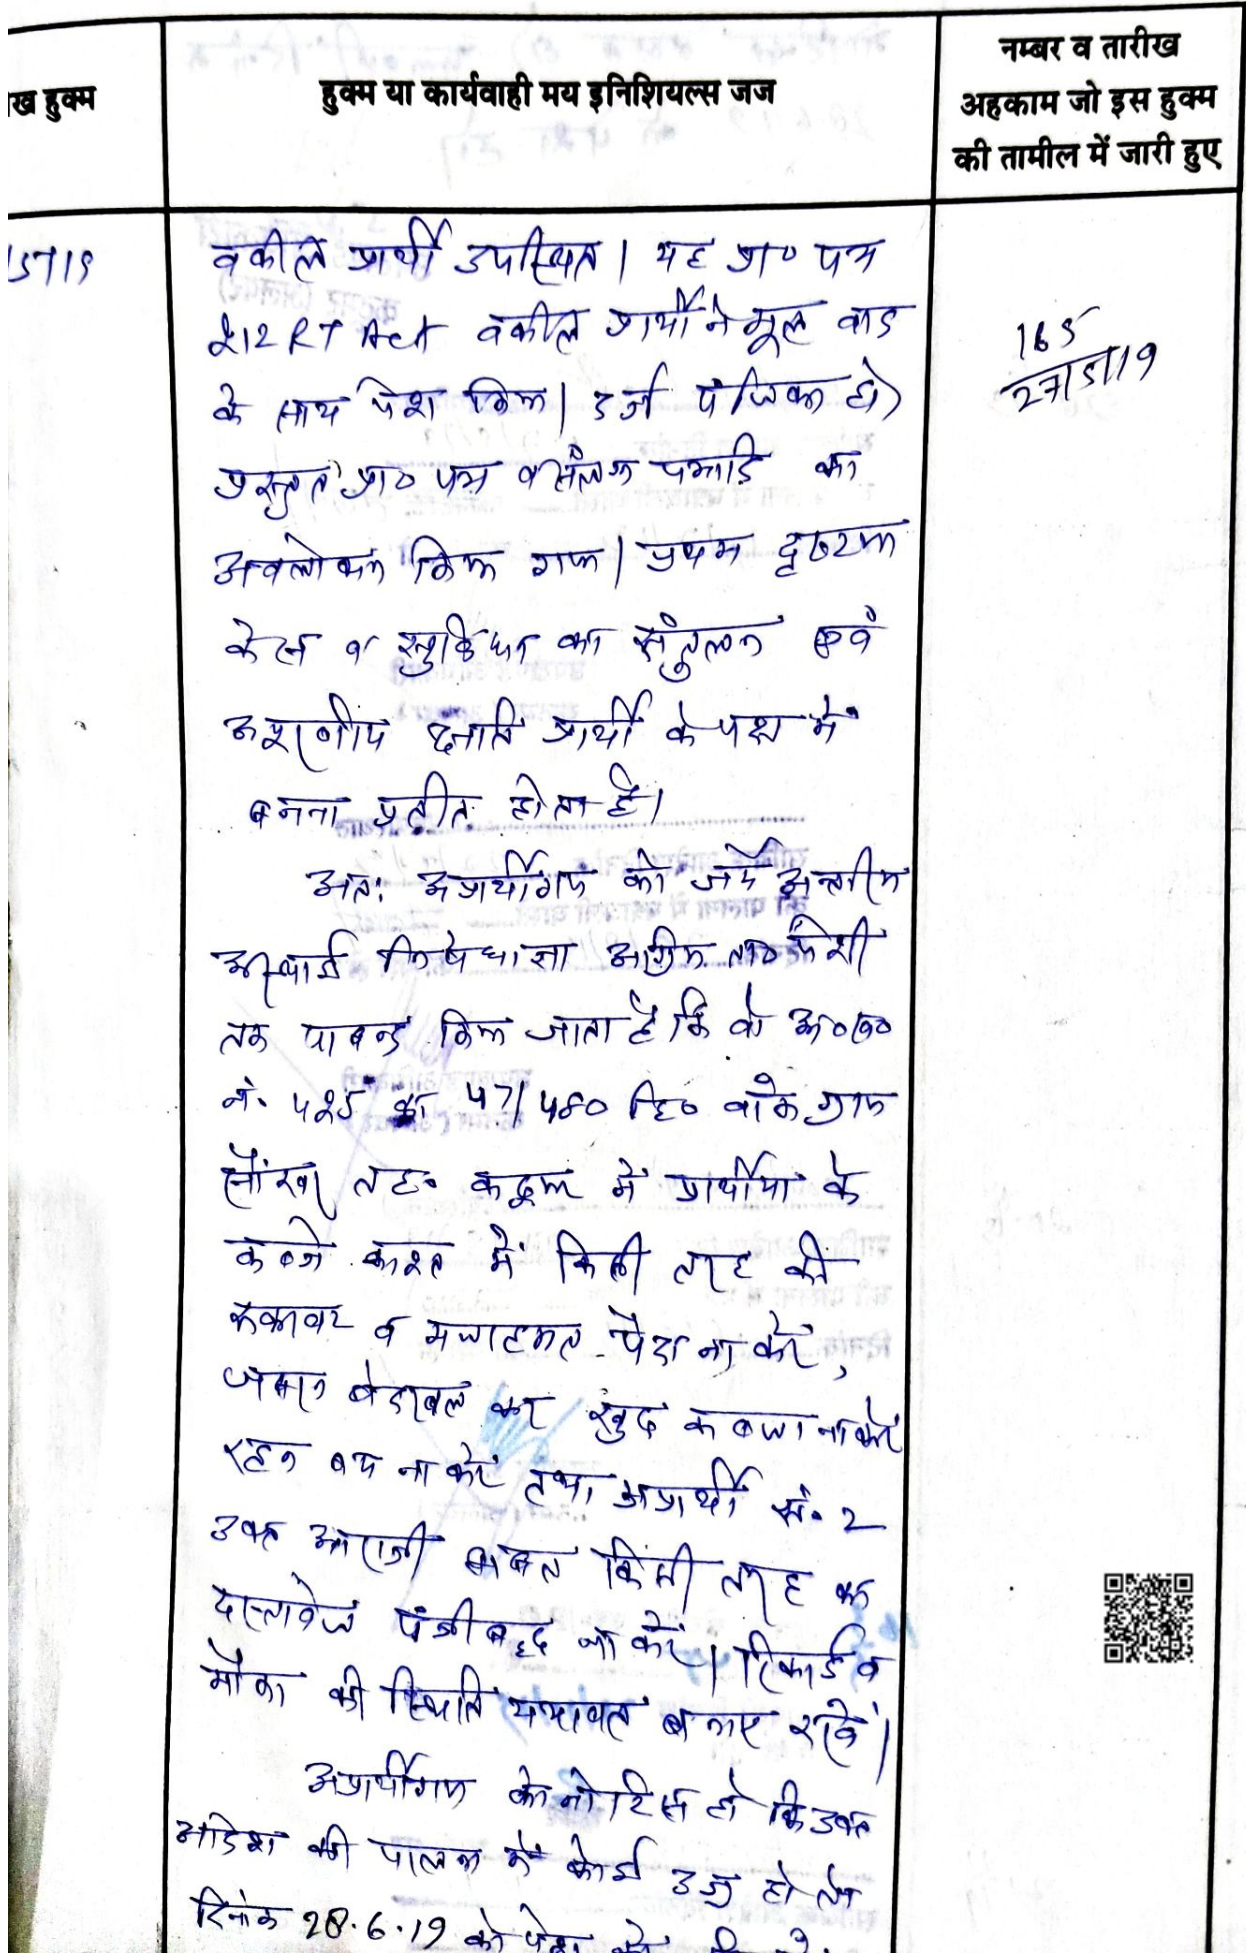 ख हुक्म
हुक्म या कार्यवाही मय इनिशियल्स जज
नम्बर व तारीख
अहकाम जो इस हुक्म
की तामील में जारी हुए
165
27/5/19
वकील प्रार्थी उपस्थित। यह प्रा० पत्र
212 RT Act वकील प्रार्थी ने मूल वाद
के साथ पेश किया। दर्ज पंजिका हो।
प्रस्तुत प्रा० पत्र व संलग्न पत्रादि का
अवलोकन किया गया। प्रथम दृष्टया
केस व सुविधा का संतुलन एवं
अपूरणीय क्षति प्रार्थी के पक्ष में
बनना प्रतीत होता है।
अतः अप्रार्थीगण को जर्ये अन्तरिम
अस्थाई निषेधाज्ञा आग्रिम ता० पेशी
तक पाबन्द किया जाता है कि वो आ०ख०
नं. 425 का 47/480 हि० वाके ग्राम
तह० कठूमर में प्रार्थीया के
कब्जे काश्त में किसी तरह की
रूकावट व मजाहमत पैदा ना करें,
जबरन बेदखल कर खुद कब्जा ना करें
रहन बय ना करें तथा अप्रार्थी सं. 2
उक्त आराजी बाबत किसी तरह का
दस्तावेज पंजीबद्ध ना करें। रिकार्ड व
मौका की स्थिति यथावत बनाए रखें।
अप्रार्थीगण को नोटिस हो कि उक्त
आदेश की पालना में कोई उज्र हो तो
दिनांक 28.6.19 को पेश करें